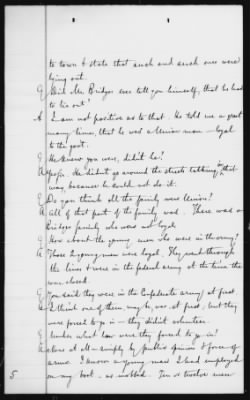 to town & state that such and such one were
lying out.
Q Did Mr. Bridges ever tell you himself, that he had
to lie out?
A I am not positive as to that. He told me a great
many times, that he was a Union man – loyal
to the govt.
Q He knew you were, didn't he?
A Yes, sir. He didn't go around the streets talking in that
way, because he could not do it.
Q Do you think all the family were Union?
A All of that part of the family was. There was a
Bridges family who were not loyal.
Q How about the young men who were in the army?
A Those young men were loyal. They went through
the lines & were in the federal army at the time the
war closed.
Q You said they were in the Confederate army at first.
A I think one of them may be, was at first, but they
were forced to go in – they didn't volunteer.
Q Under what law were they forced to go in?
A None at all – simply by public opinion & force of
arms. I know a young man I had employed
on my boat, as mobbed. Ten or twelve men
5